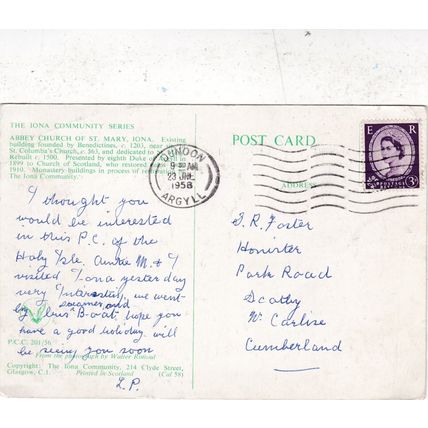 THE IONA COMMUNITY SERIES
ABBEY CHURCH OF ST. MARY, IONA. Existing
building founded by Benedictines, c. 1203, near
St. Columba's Church, c. 563, and dedicated to
Rebuilt c. 1500. Presented by eighth Duke of
1899 to Church of Scotland, who restored
1910. Monastery buildings in process of
The Iona Community.
POST CARD
ADDRESS
DUNOON
ARGYLL
23
1958
E R
POSTAGE
3D
I thought you
would be interested
in this P.C. of the
Holy Isle. Auntie M. & I
visited Iona yesterday
very Interesting, we went
by steamer and
Bus B-oat, hope you
have a good holiday will
be seeing you soon
L.P.
P.C.C. 201/56
From the photograph by Walter
Copyright: The Iona Community, 214 Clyde Street,
Glasgow, C.1. Printed in Scotland (Cal 58)
S.R. Foster
Honister
Park Road
Scotby
Nr. Carlise
Cumberland